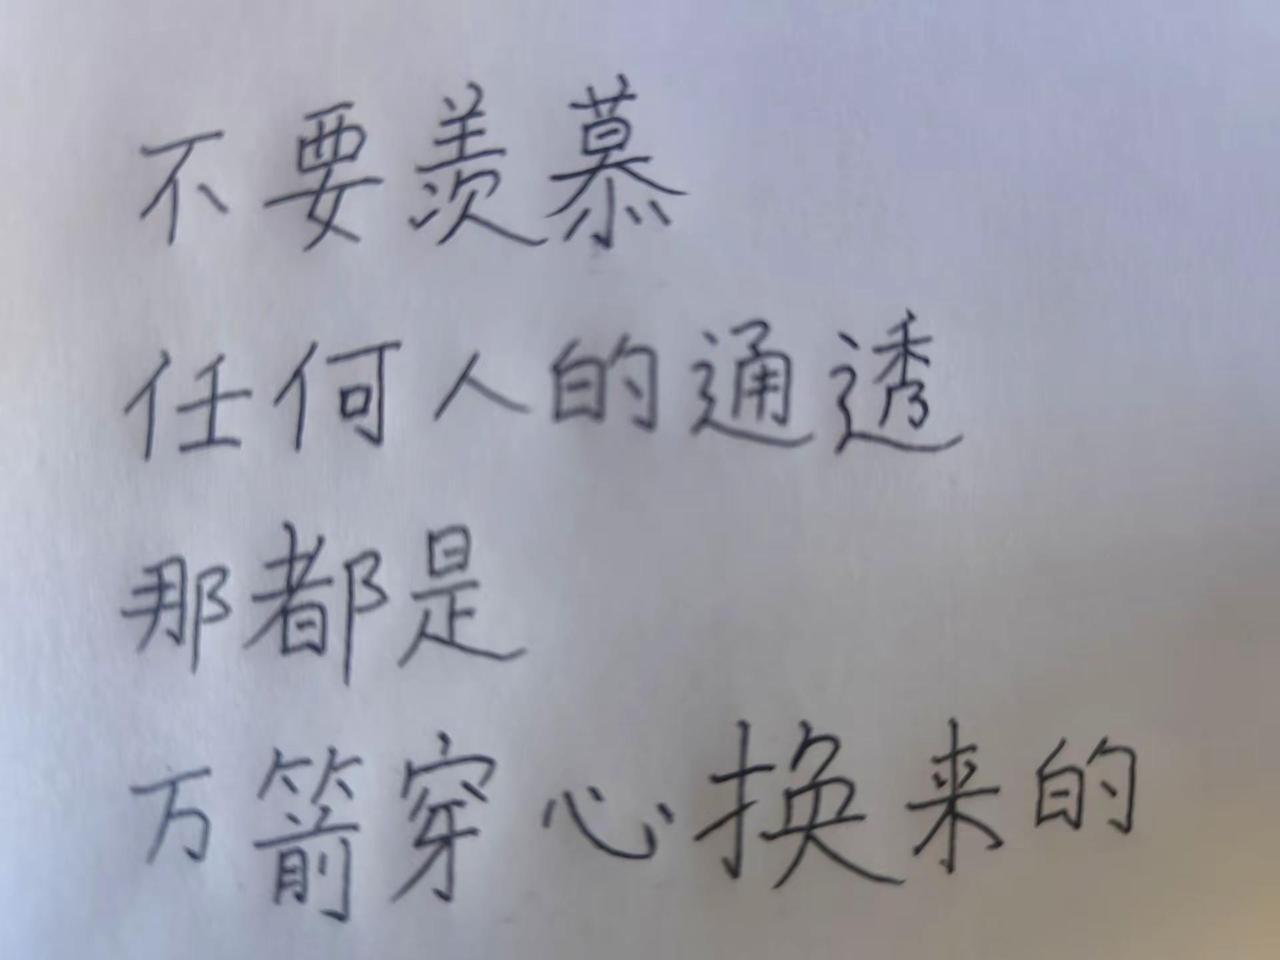 不要羡慕
任何人的通透
那都是
万箭穿心换来的